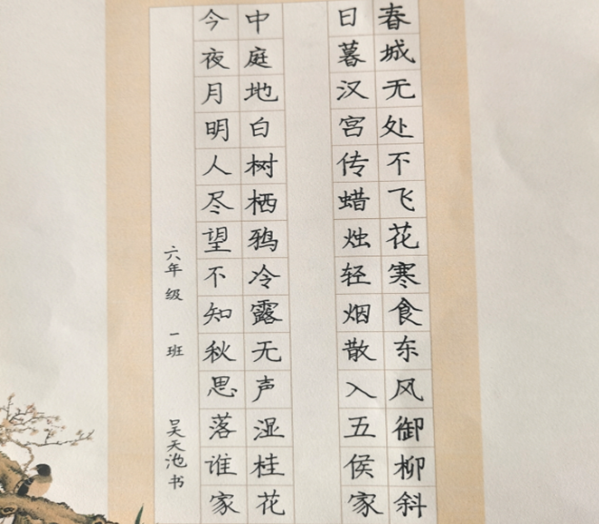 春城无处不飞花寒食东风御柳斜
日暮汉宫传蜡烛轻烟散入五侯家
中庭地白树栖鸦冷露无声湿桂花
今夜月明人尽望不知秋思落谁家
六年级 一班 吴天池书